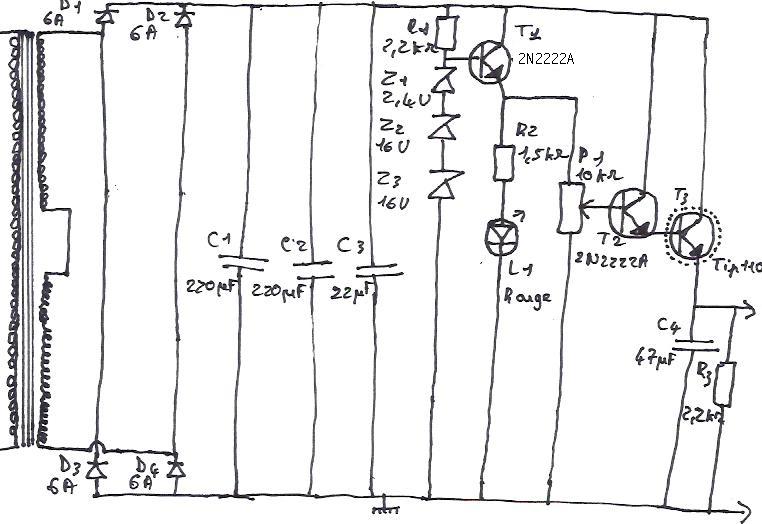 D1
6A
D2
6A
R1
2,2kΩ
T1
2N2222A
Z1
2,4V
Z2
16V
Z3
16V
R2
1,5kΩ
P1
10kΩ
T2
2N2222A
T3
Tip110
C1
220µF
C2
220µF
C3
22µF
L1
Rouge
C4
47µF
R3
2,2kΩ
D3
6A
D4
6A